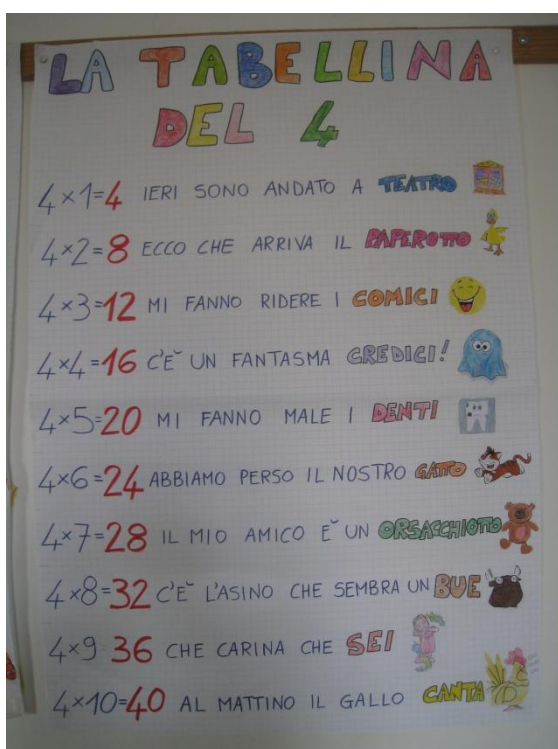 LA TABELLINA
DEL 4
4×1=4 IERI SONO ANDATO A TEATRO
4×2=8 ECCO CHE ARRIVA IL PAPEROTTO
4×3=12 MI FANNO RIDERE I COMICI
4×4=16 C'E˘ UN FANTASMA CREDICI!
4×5=20 MI FANNO MALE I DENTI
4×6=24 ABBIAMO PERSO IL NOSTRO GATTO
4×7=28 IL MIO AMICO E˘ UN ORSACCHIOTTO
4×8=32 C'E˘ L'ASINO CHE SEMBRA UN BUE
4×9 36 CHE CARINA CHE SEI
4×10=40 AL MATTINO IL GALLO CANTA